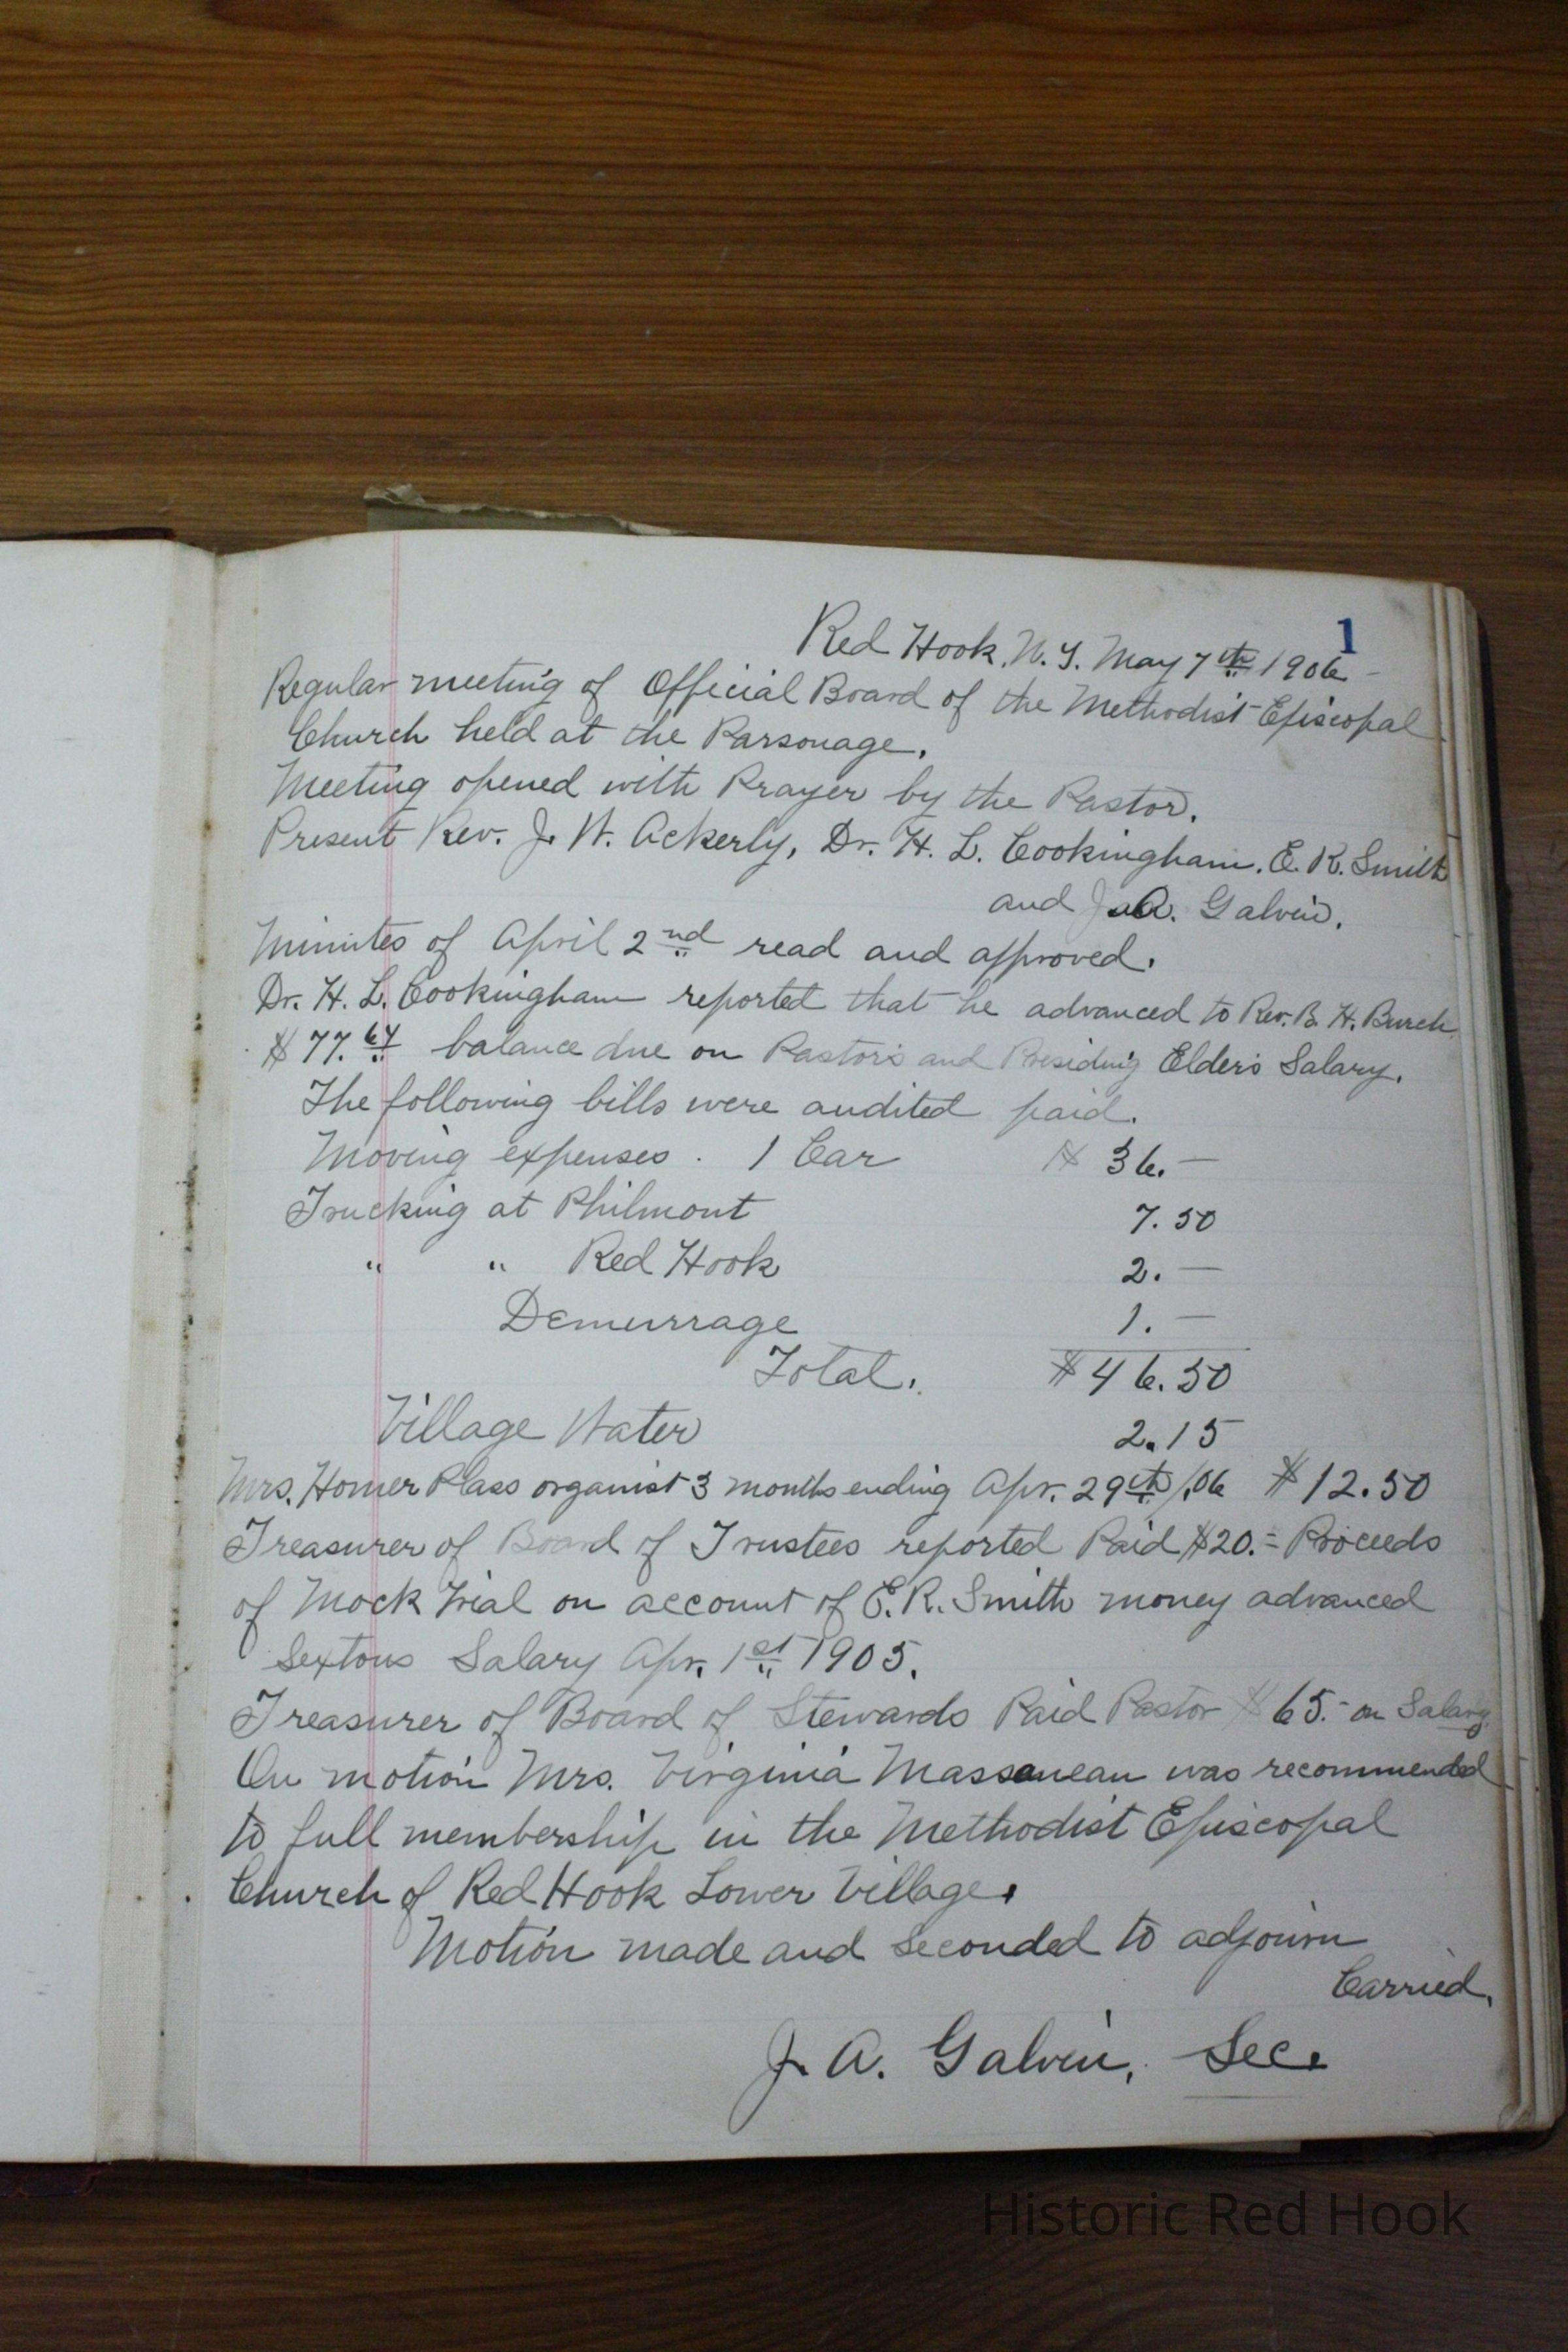 1
Red Hook, N. Y. May 7th 1906 -
Regular meeting of Official Board of the Methodist Episcopal
Church held at the Parsonage.
Meeting opened with Prayer by the Pastor.
Present Rev. J. W. Ackerly, Dr. H. L. Cookingham. E. R. Smith
and J. A. Galvin.
Minutes of April 2nd read and approved.
Dr. H. L. Cookingham reported that he advanced to Rev. B. H. Burch
$77.64 balance due on Pastor's and Presiding Elder's Salary.
The following bills were audited paid.
Moving expenses. 1 Car $ 36. —
Trucking at Philmont 7.50
" " Red Hook 2. —
Demurrage 1. —
Total. $ 46.50
Village Water 2.15
Mrs. Homer Plass organist 3 months ending Apr. 29th/.06 $12.50
Treasurer of Board of Trustees reported Paid $20.= Proceeds
of Mock Trial on account of E. R. Smith money advanced
Sextons Salary Apr. 1st 1905.
Treasurer of Board of Stewards Paid Pastor $65.- on Salary.
On motion Mrs. Virginia Massoneau was recommended
to full membership in the Methodist Episcopal
Church of Red Hook Lower Village.
Motion made and seconded to adjourn
Carried.
J. A. Galvin, Sec.
Historic Red Hook